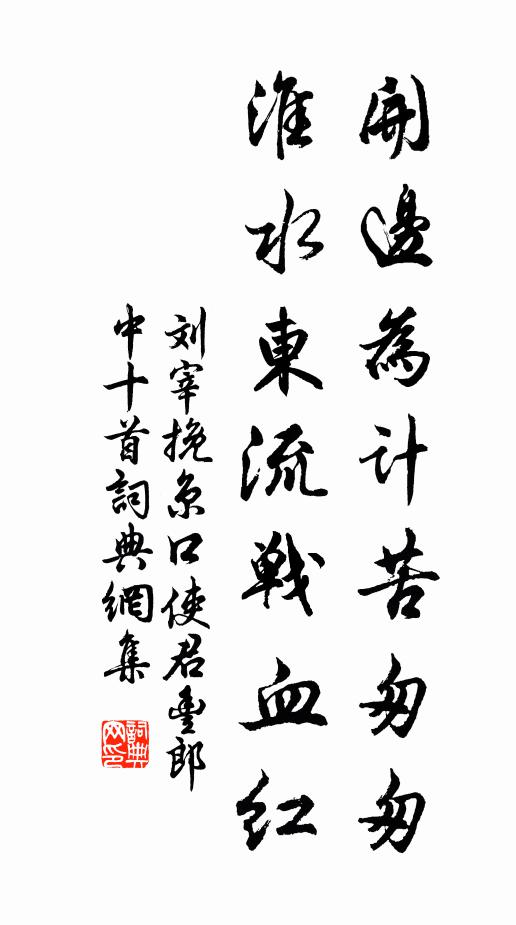 開邊為計苦匆匆
淮水東流戰血紅
刘宰挽京口使君豐郎
中十首詞典網集
詞典網印